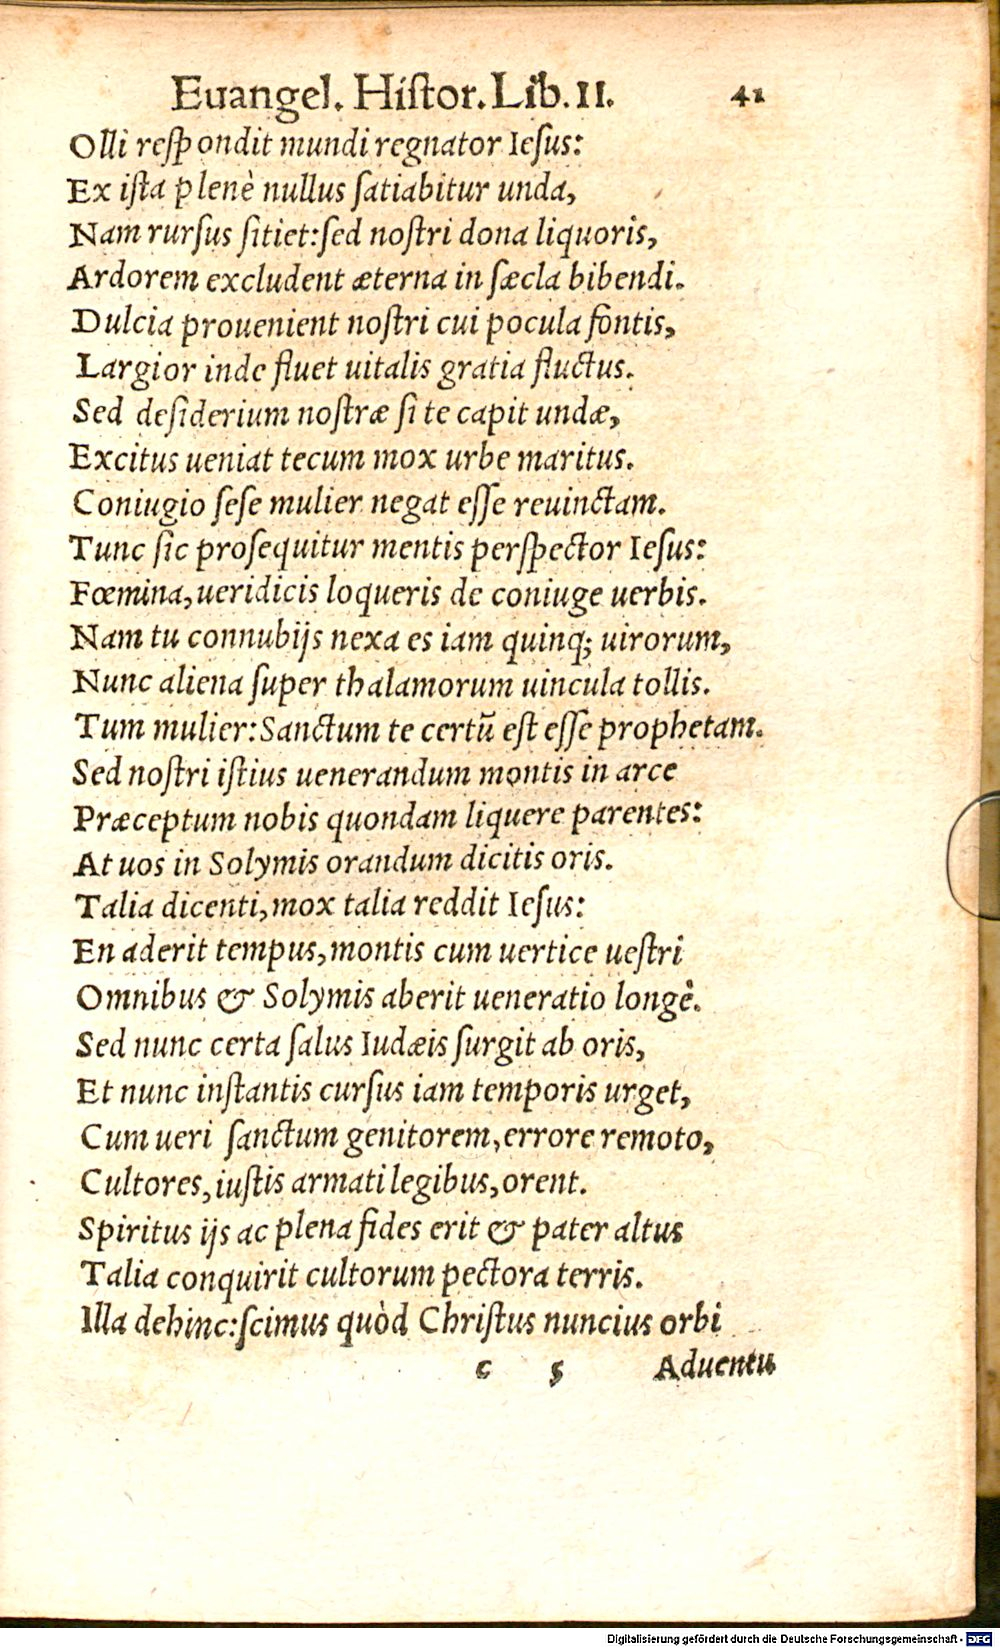 Euangel. Histor. Lib. II. 41
Olli respondit mundi regnator Iesus:
Ex ista plenè nullus satiabitur unda,
Nam rursus sitiet: sed nostri dona liquoris,
Ardorem excludent æterna in sæcla bibendi.
Dulcia prouenient nostri cui pocula fontis,
Largior inde fluet uitalis gratia fluctus.
Sed desiderium nostræ si te capit undæ,
Excitus ueniat tecum mox urbe maritus.
Coniugio sese mulier negat esse reuinctam.
Tunc sic prosequitur mentis perspector Iesus:
Fœmina, ueridicis loqueris de coniuge uerbis.
Nam tu connubijs nexa es iam quinq; uirorum,
Nunc aliena super thalamorum uincula tollis.
Tum mulier: Sanctum te certũ est esse prophetam.
Sed nostri istius uenerandum montis in arce
Præceptum nobis quondam liquere parentes:
At uos in Solymis orandum dicitis oris.
Talia dicenti, mox talia reddit Iesus:
En aderit tempus, montis cum uertice uestri
Omnibus & Solymis aberit ueneratio longè.
Sed nunc certa salus Iudæis surgit ab oris,
Et nunc instantis cursus iam temporis urget,
Cum ueri sanctum genitorem, errore remoto,
Cultores, iustis armati legibus, orent.
Spiritus ijs ac plena fides erit & pater altus
Talia conquirit cultorum pectora terris.
Illa dehinc: scimus quòd Christus nuncius orbi
c 5 Aduentu
Digitalisierung gefördert durch die Deutsche Forschungsgemeinschaft - DFG